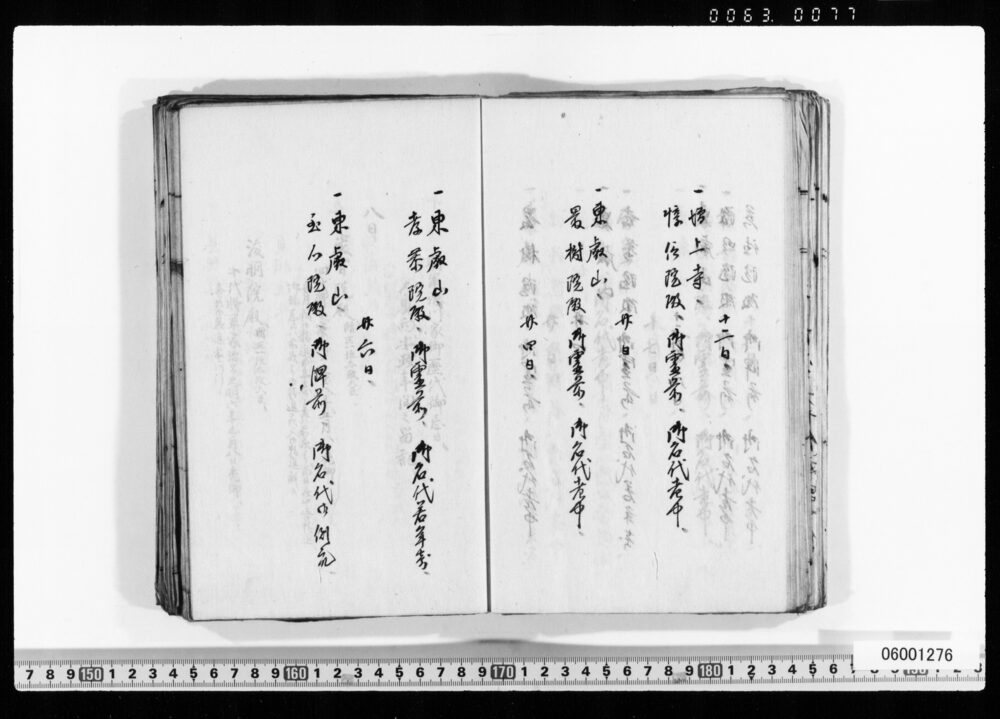 0063. 0077
十二日、
一 増上寺、
惇信院殿、御霊前、御名代老中、
廿日、
一 東叡山、
最樹院殿、御霊前、御名代老中、
廿四日、
一 東叡山、
孝恭院殿、御霊前、御名代若年寄、
廿六日、
一 東叡山、
至心院殿、御牌前、御名代御側衆、
7 8 9 150 1 2 3 4 5 6 7 8 9 160 1 2 3 4 5 6 7 8 9 170 1 2 3 4 5 6 7 8 9 180 1 2 3 4 5 6
06001276